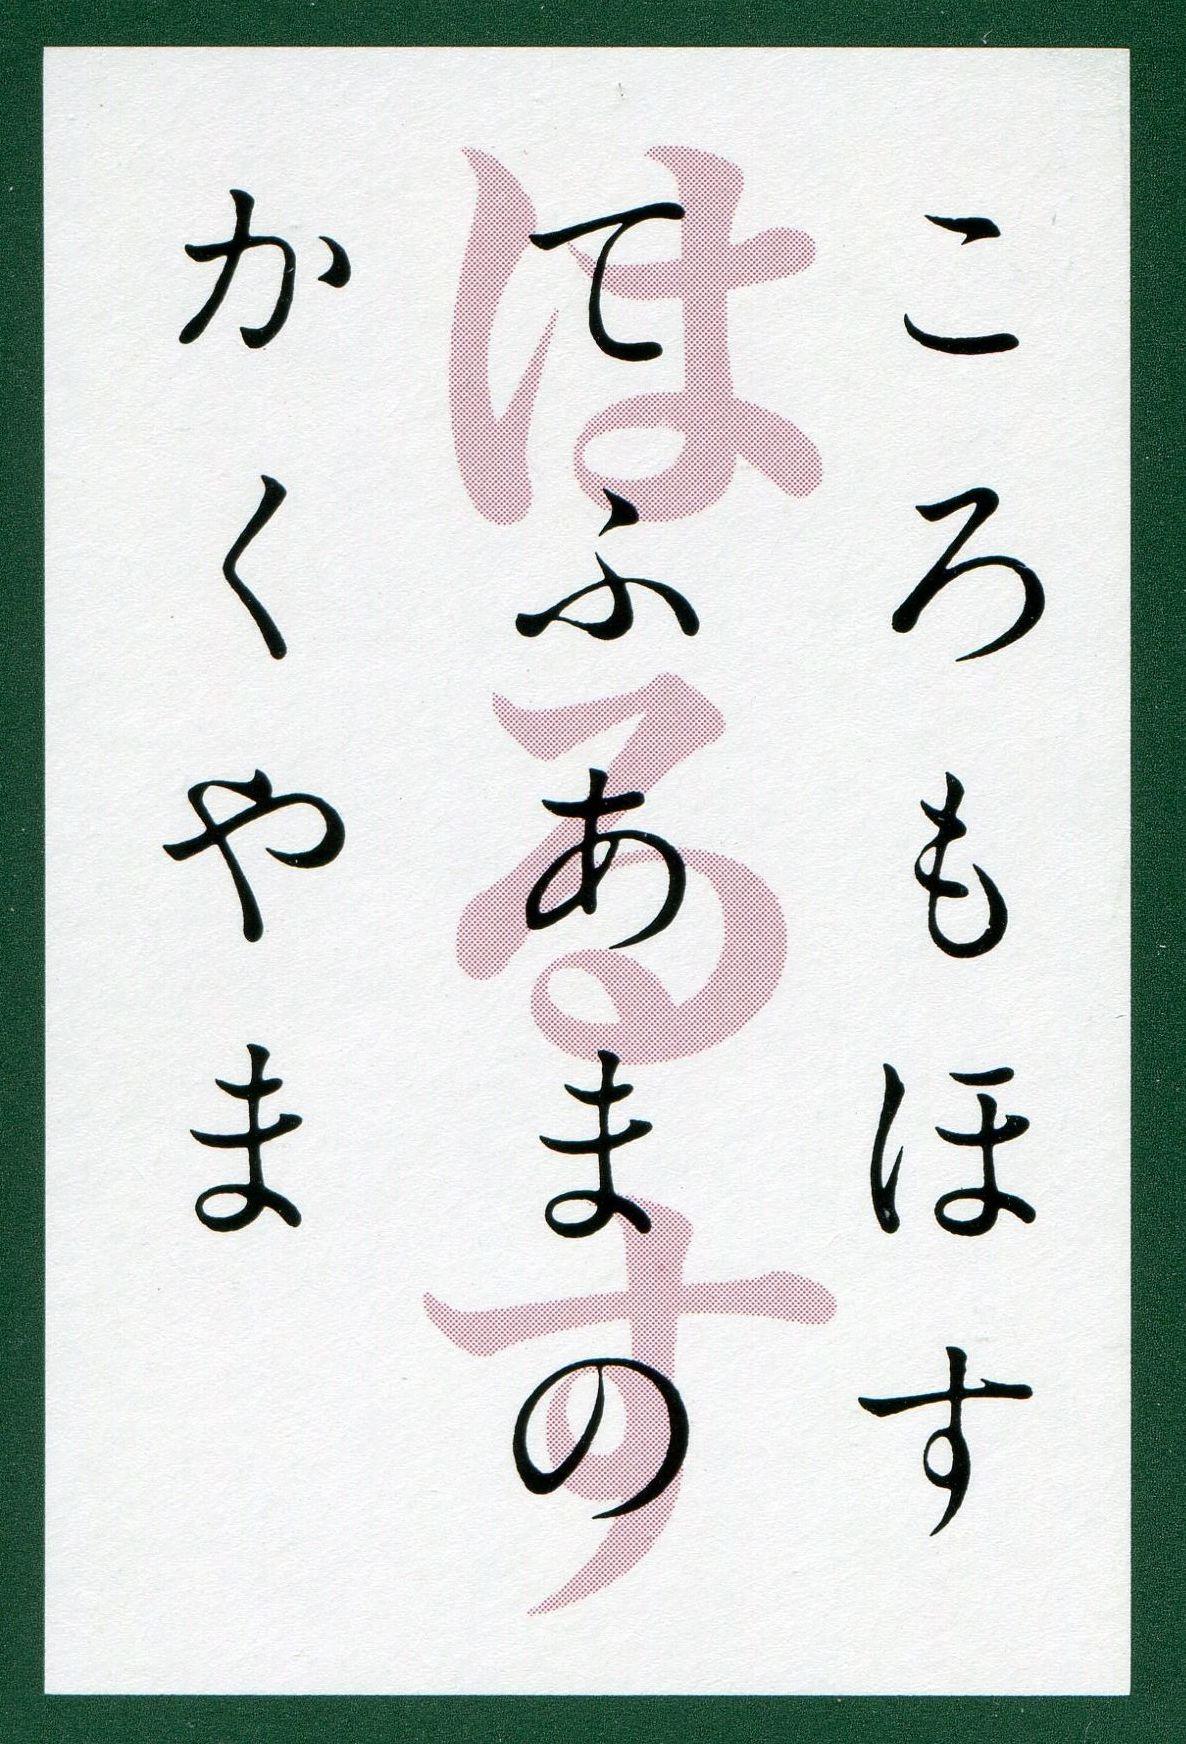 ころもほす
てふあまの
かくやま
はるす